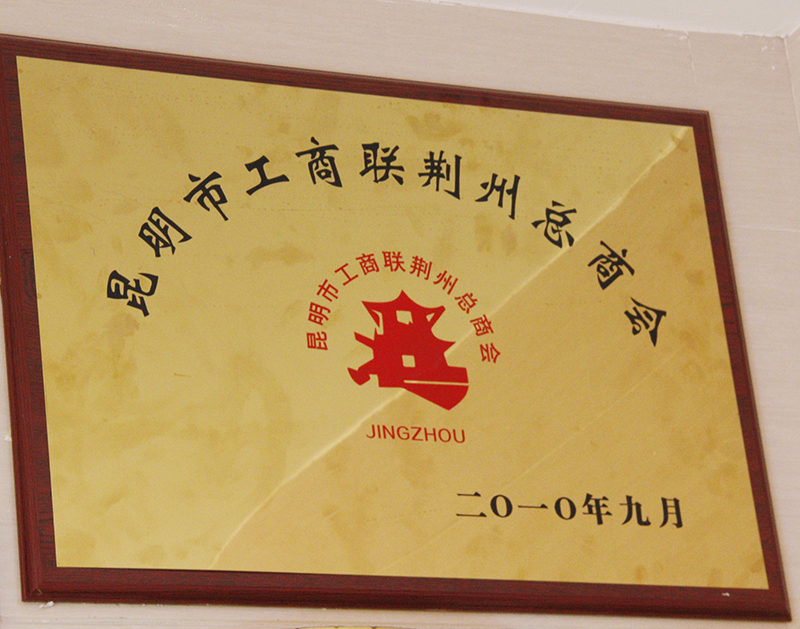 昆明市工商联荆州总商会
昆明市工商联荆州总商会
JINGZHOU
二O一O年九月